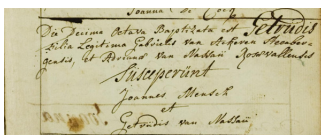 Joanna de Cock
Die Decima Octava Baptizata est Getrudis
Filia Legitima Gabrielis van Ackeren Steenber-
gensis, et Adriana van Nassau Rosendalensis
Susceperunt
Joannes Mensch
et
Getrudis van Nassau